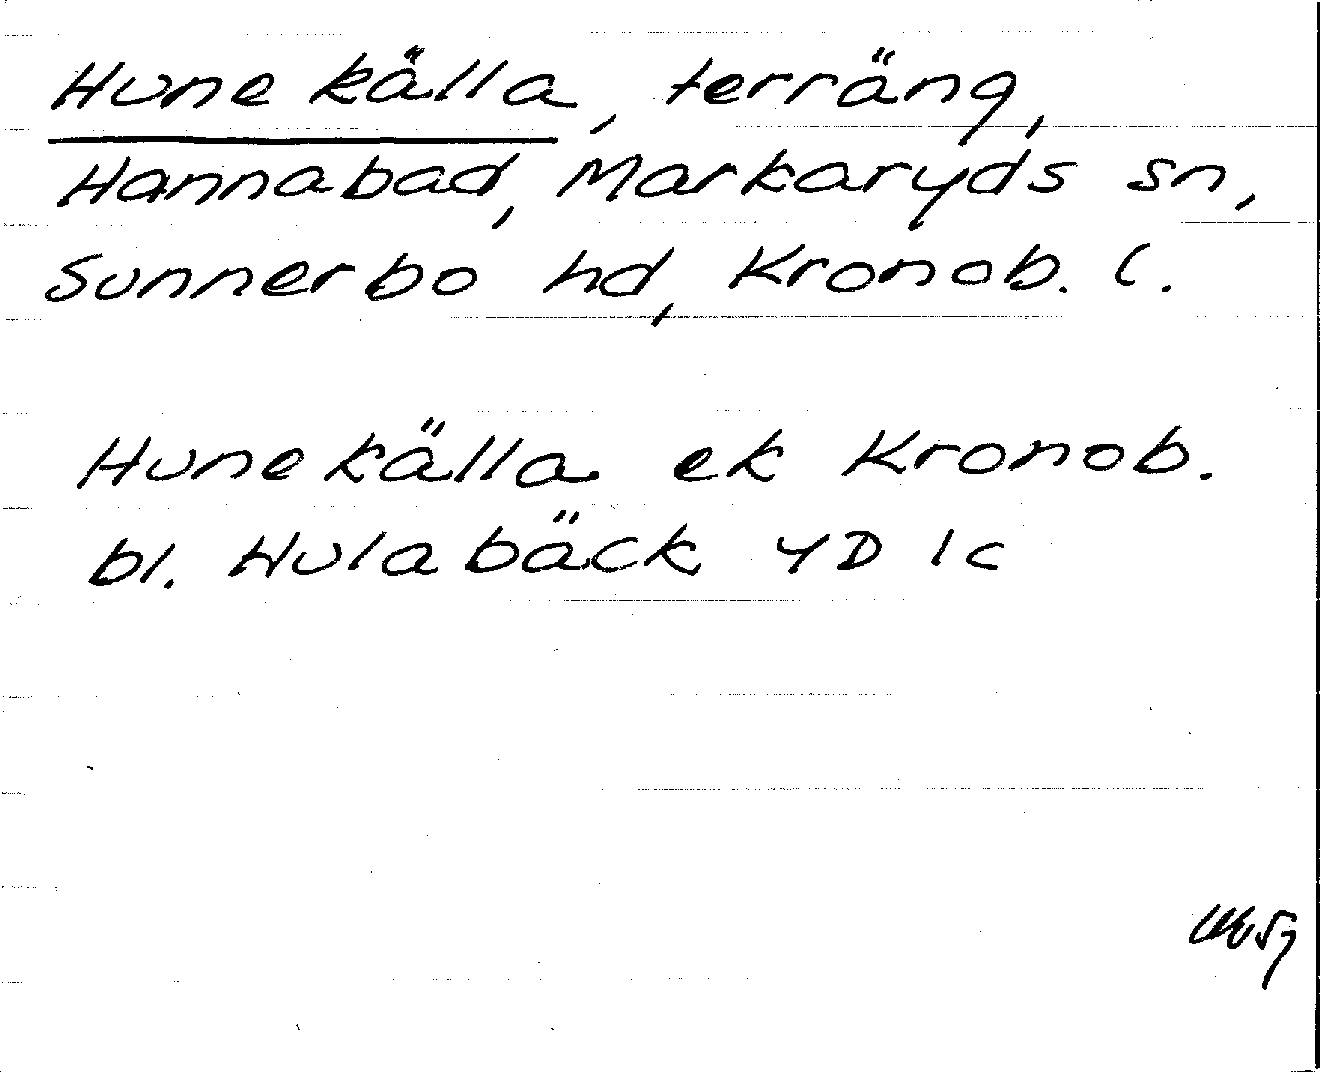 Hune källa, terräng,
Hannabad, Markaryds sn,
Sunnerbo hd, Kronob. l.
Hunekälla ek Kronob.
bl. Hulabäck 4D 1c